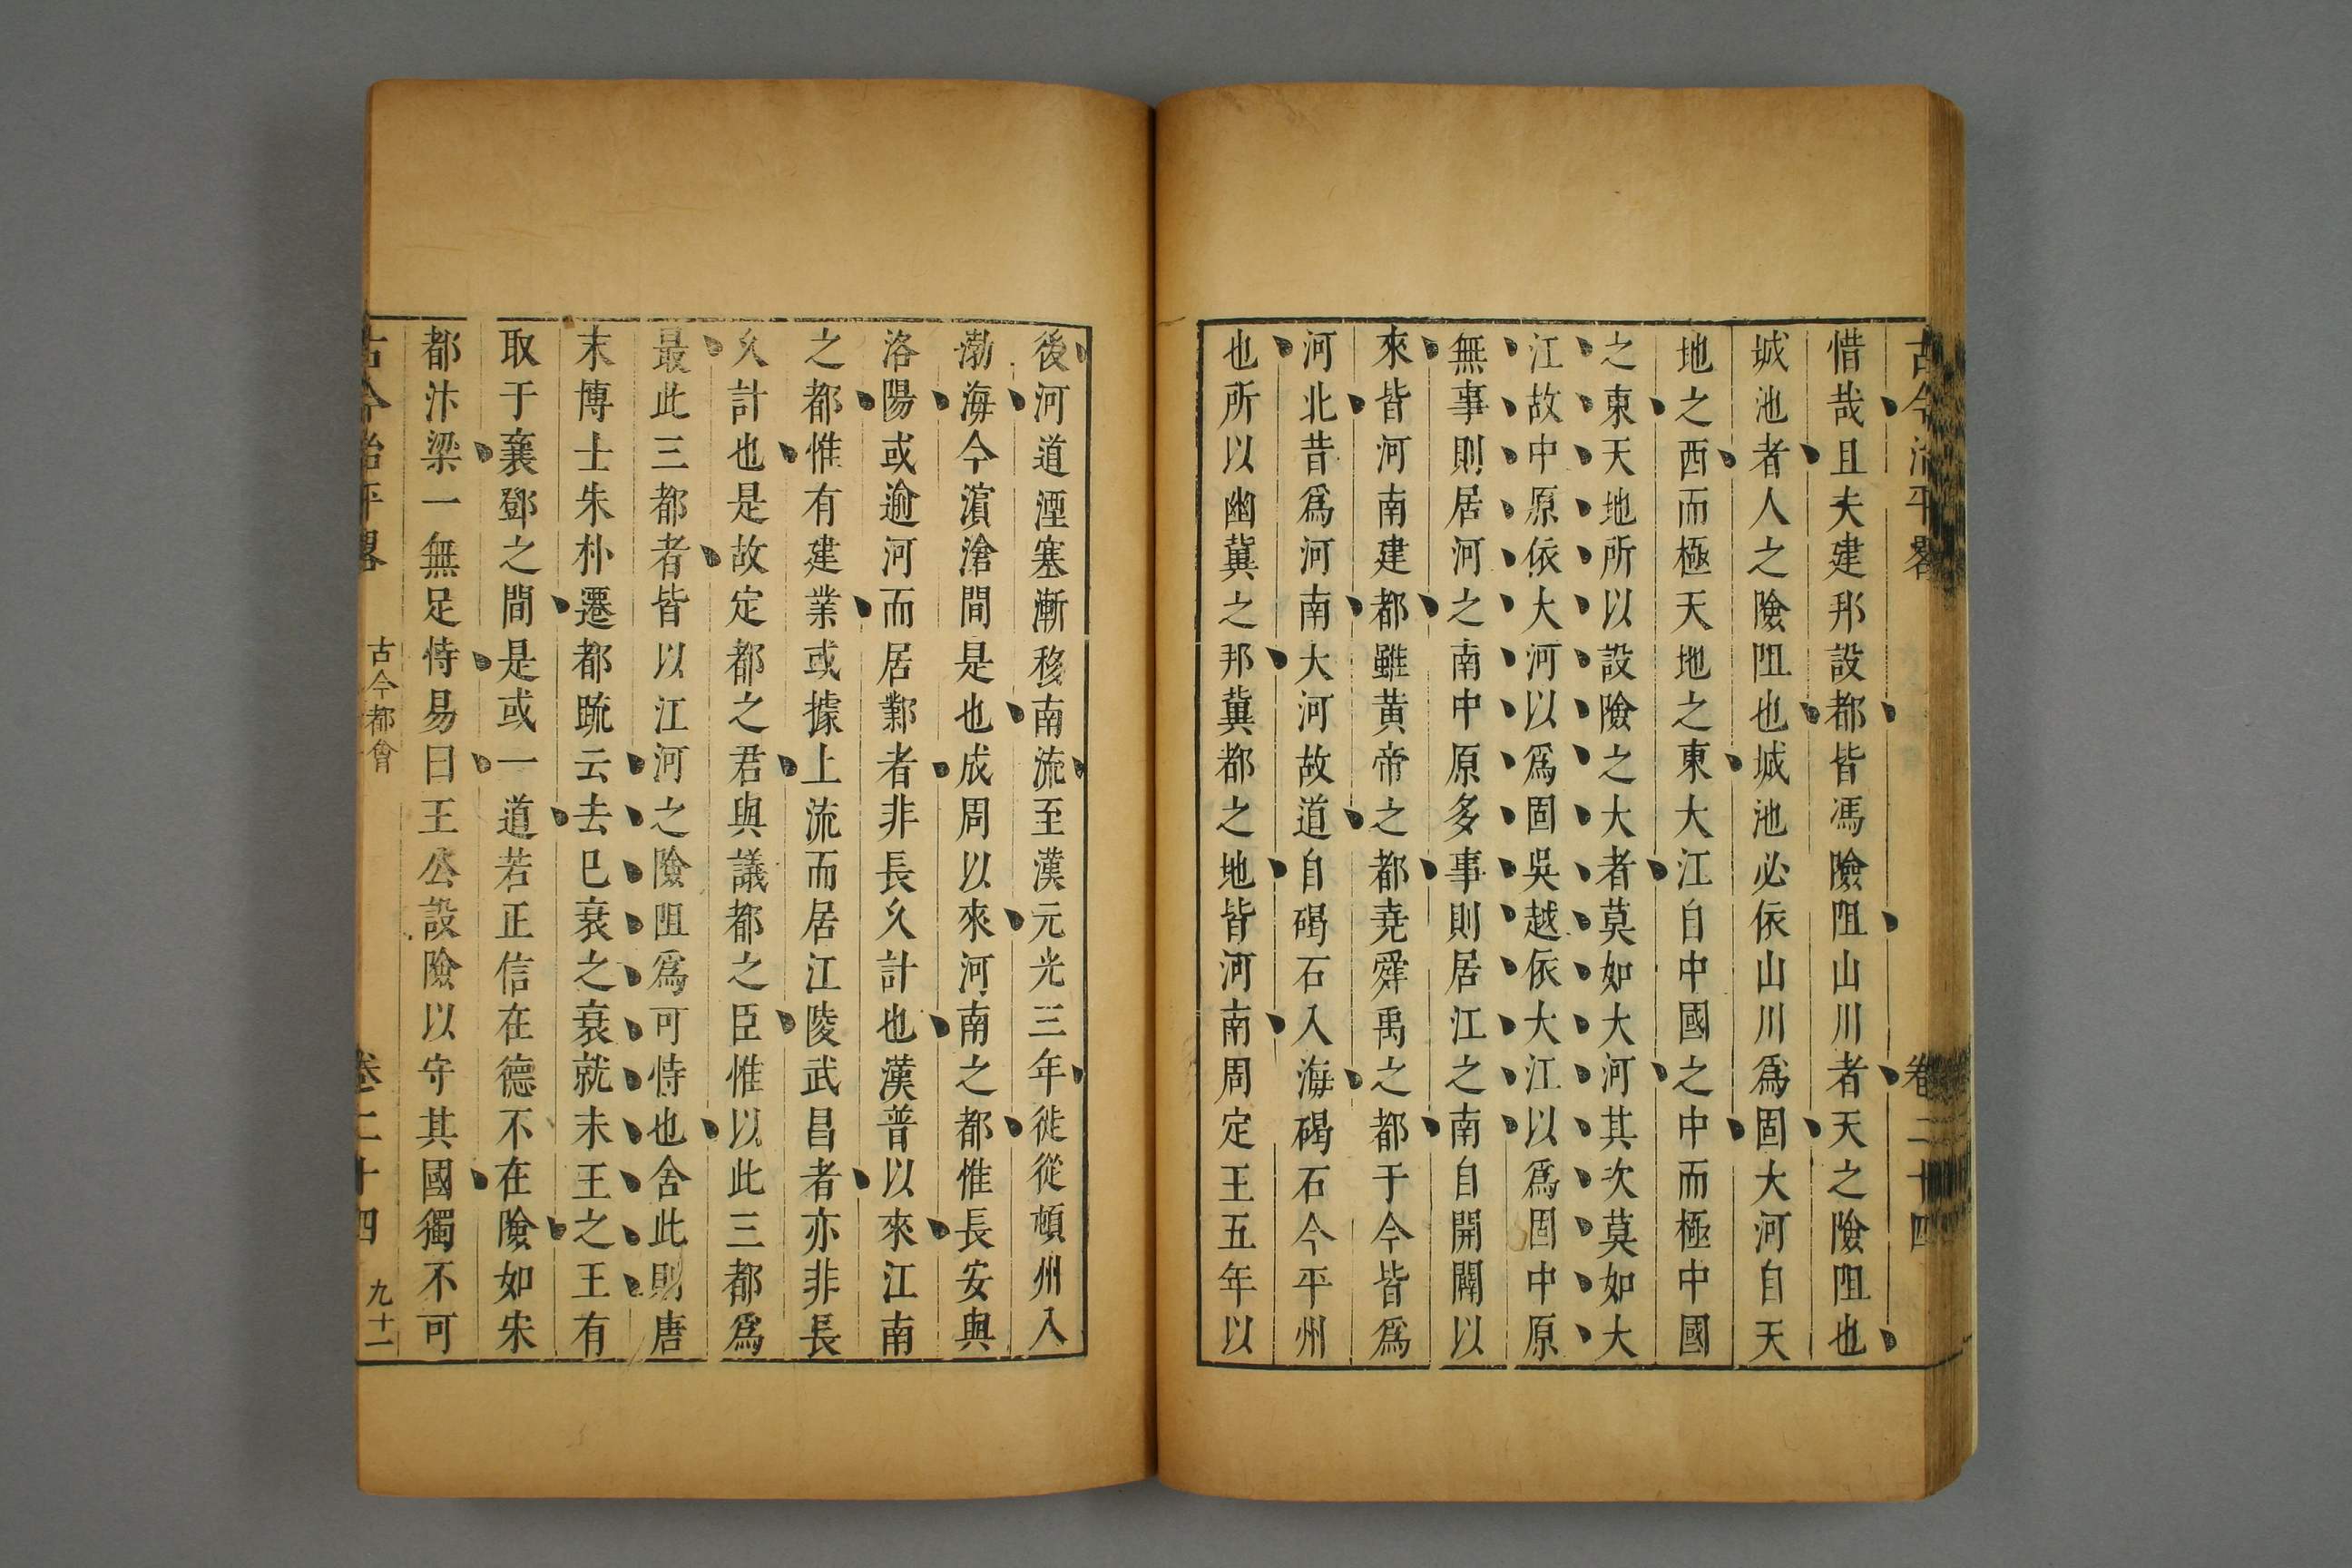 古今治平畧 卷二十四
惜哉且夫建邦設都皆馮險阻山川者天之險阻也
城池者人之險阻也城池必依山川爲固大河自天
地之西而極天地之東大江自中國之中而極中國
之東天地所以設險之大者莫如大河其次莫如大
江故中原依大河以爲固吳越依大江以爲固中原
無事則居河之南中原多事則居江之南自開闢以
來皆河南建都雖黃帝之都堯舜禹之都于今皆爲
河北昔爲河南大河故道自碣石入海碣石今平州
也所以幽冀之邦冀都之地皆河南周定王五年以
後河道湮塞漸移南流至漢元光三年徙從頓州入
渤海今濵滄間是也成周以來河南之都惟長安與
洛陽或逾河而居鄴者非長久計也漢晉以來江南
之都惟有建業或據上流而居江陵武昌者亦非長
久計也是故定都之君與議都之臣惟以此三都爲
最此三都者皆以江河之險阻爲可恃也舍此則唐
末博士朱朴遷都䟽云去已衰之衰就未王之王有
取于襄鄧之間是或一道若正信在德不在險如宋
都汴梁一無足恃易曰王公設險以守其國獨不可
古今治平畧 古今都會 卷二十四 九十一